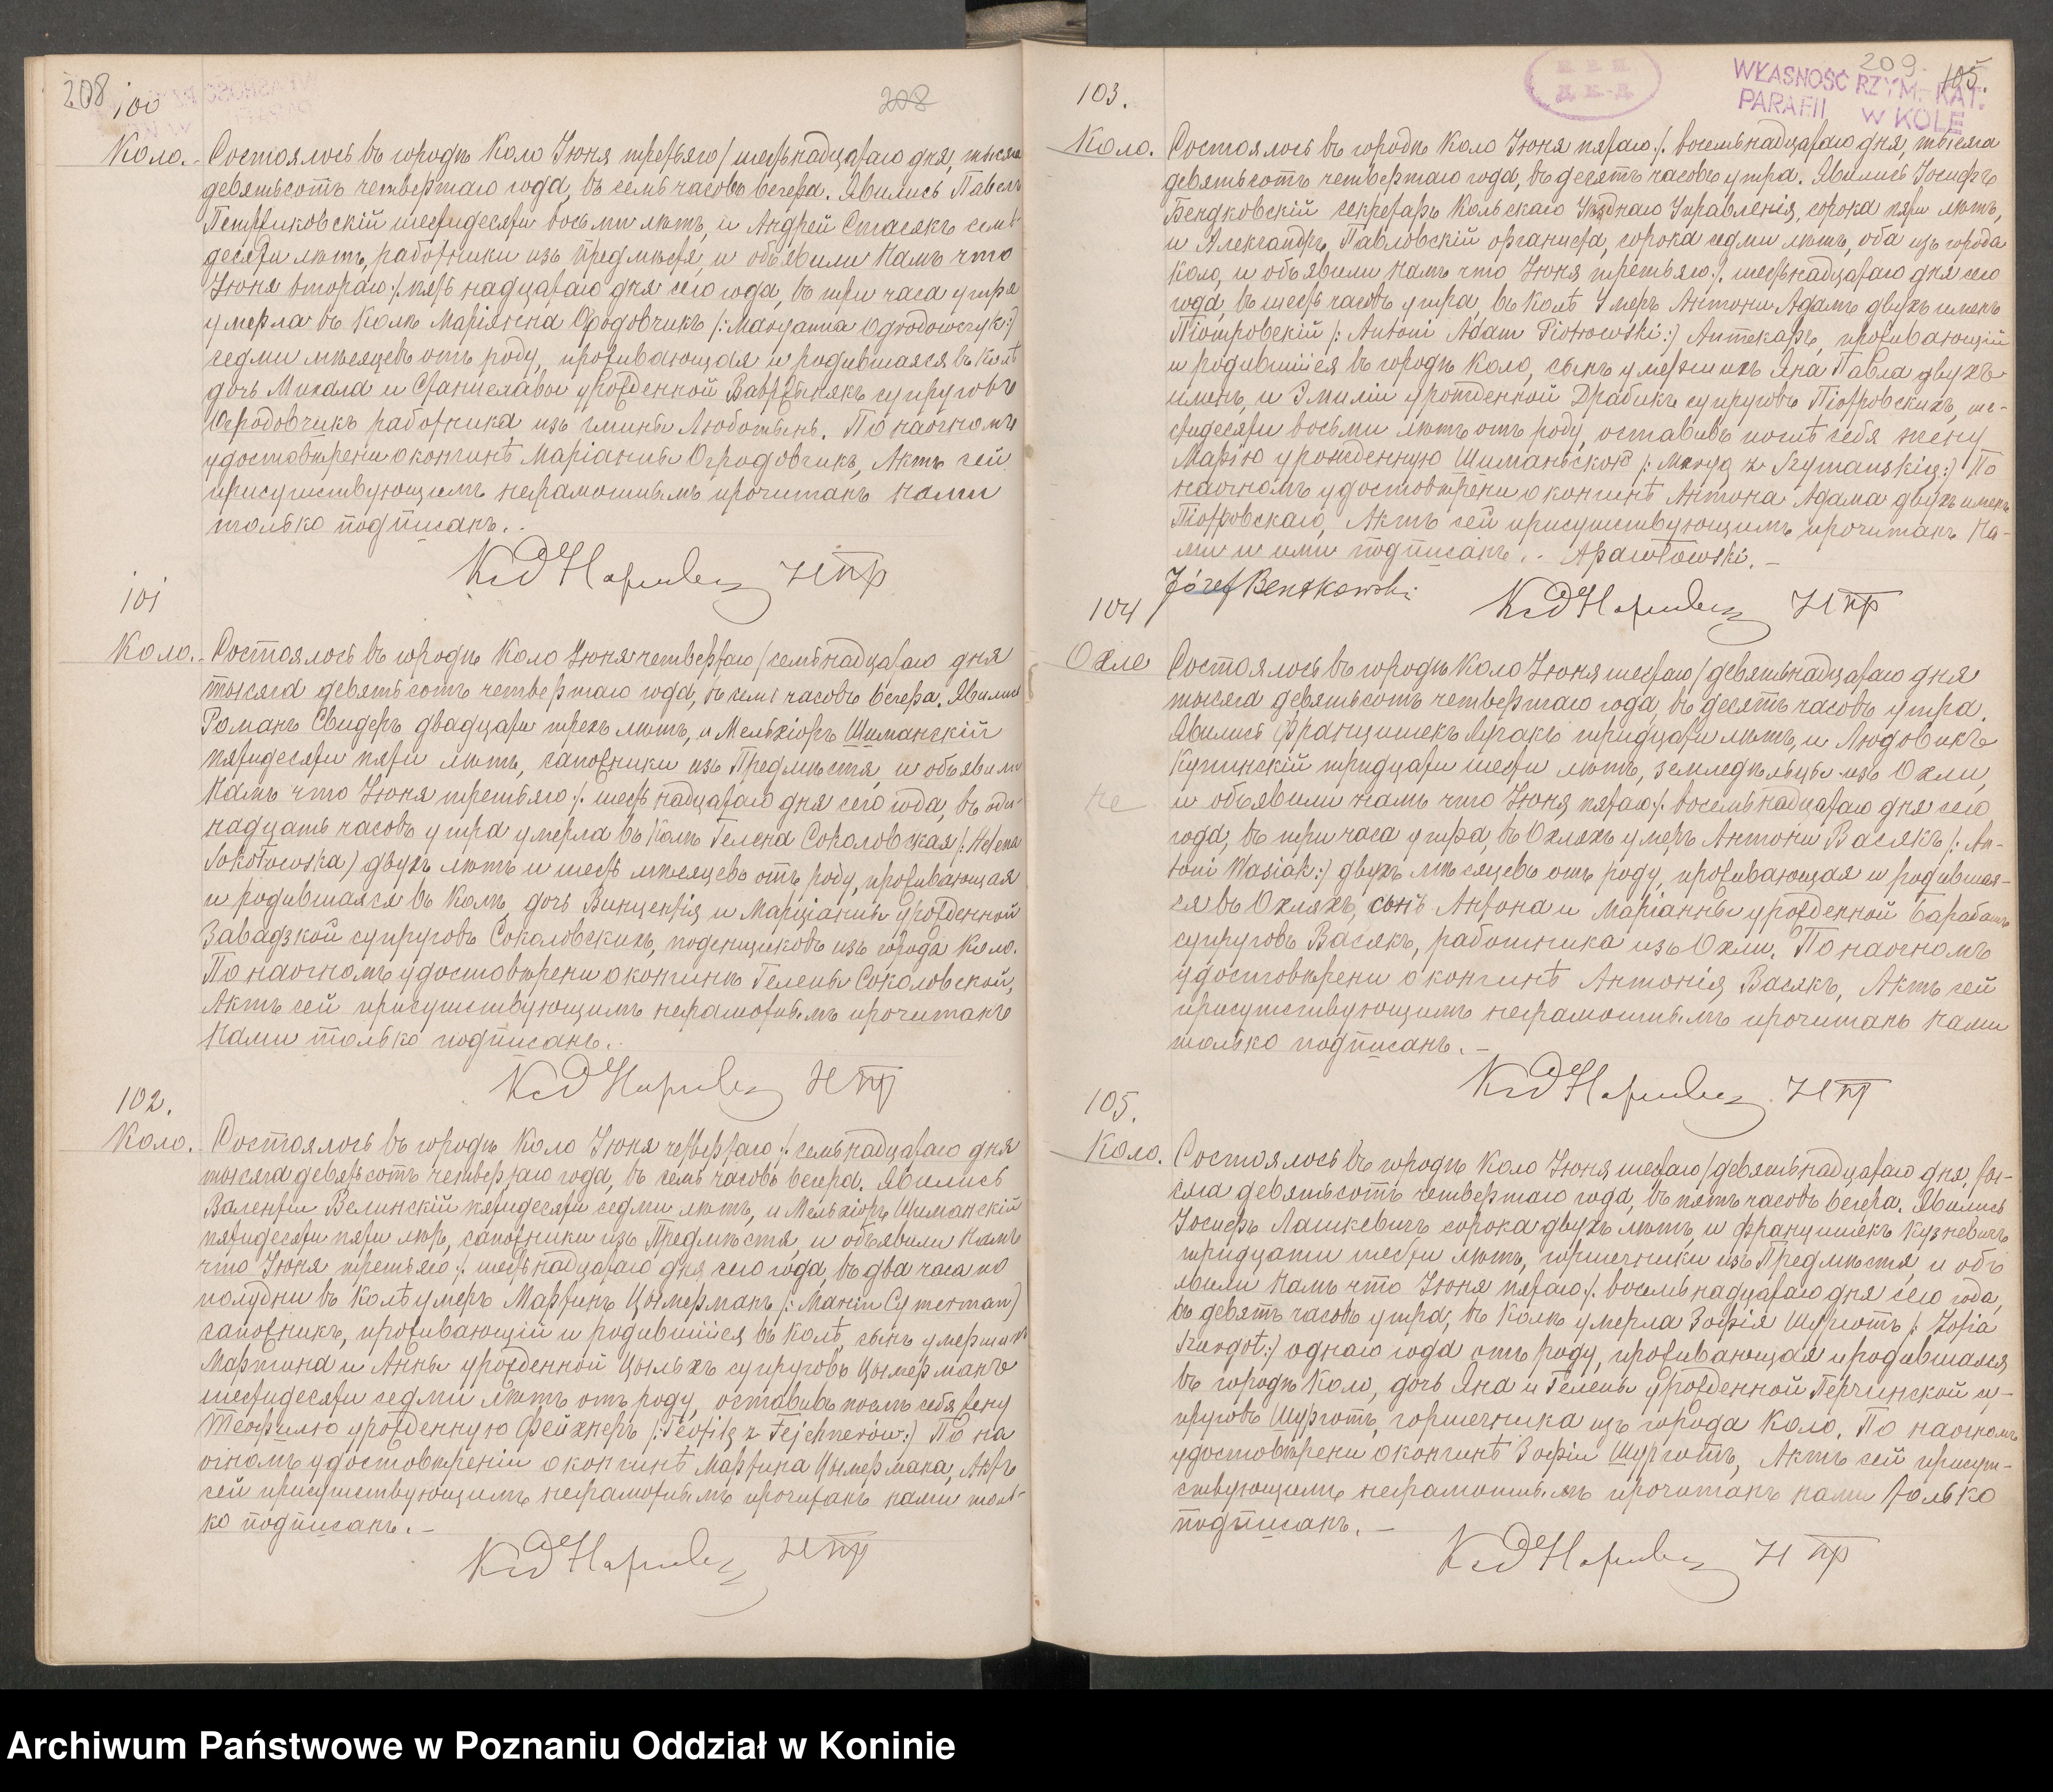 208
100
208
Коло. Состоялось въ городѣ Коло Іюня третьяго / шестьнадцатаго дня, тысяча
девятьсотъ четвертаго года, въ семь часовъ вечера. Явились Павелъ
шестидесяти восьми лѣтъ, и Андрей Стасякъ семь-
десяти лѣтъ, работники изъ Предмѣстя, и объявили намъ что
Іюня втораго /. пятьнадцатаго дня сего года, въ три часа утра
умерла въ Колѣ Маріянна Огродовчикъ /: Maryanna Ogrodowczyk :/
седми мѣсяцевъ отъ роду, проживающая и родившаяся въ Колѣ
дочь Михала и Станиславы урожденной супруговъ
Огродовчикъ работника изъ гмины Люботынь. По наочномъ
удостовѣрени о кончинѣ Маріанны Огродовчикъ, Актъ сей
присутствующимъ неграмотнымъ прочитанъ нами
только подписанъ..
101
Коло. Состоялось въ городѣ Коло Іюня четвертаго / семьнадцатаго дня
тысяча девятьсотъ четвертаго года, въ семь часовъ вечера. Явились
Романъ Свидеръ двадцати трехъ лѣтъ, и Мельхіоръ Шиманскій
пятидесяти пяти лѣтъ, сапожники изъ Предмѣстя, и объявили
намъ что Іюня третьяго /. шестьнадцатаго дня сего года, въ оди-
надцать часовъ утра умерла въ Колѣ Гелена Соколовская /: Helena
Sokołowska) двухъ лѣтъ и шесть мѣсяцевъ отъ роду, проживающая
и родившаяся въ Колѣ, дочь Винцентія и Марціанны урожденной
Завадзкой супруговъ Соколовскихъ, поденщиковъ изъ города Коло.
По наочномъ удостовѣрени о кончинѣ Гелены Соколовской,
Актъ сей присутствующимъ неграмотнымъ прочитанъ
нами только подписанъ..
102.
Коло. Состоялось въ городѣ Коло Іюня четвертаго /. семьнадцатаго дня
тысяча девятьсотъ четвертаго года, въ семь часовъ вечера. Явились
Валенти Велинскій пятидесяти седми лѣтъ, и Мельхіоръ Шиманскій
пятидесяти пяти лѣтъ, сапожники изъ Предмѣстя, и объявили намъ
что Іюня третьяго /. шестьнадцатаго дня сего года, въ два часа по
полудни въ Колѣ умеръ Мартинъ Цымерманъ /: Marcin Cymerman)
сапожникъ, проживающій и родившійся въ Колѣ, сынъ умершихъ
Мартина и Анны урожденной супруговъ Цымерманъ
шестидесяти седми лѣтъ отъ роду, оставивъ послѣ себя жену
Теофилю урожденную Фейхнеръ /: Teofilę z Fejchnerów :/ По на
очномъ удостовѣреніи о кончинѣ Мартина Цымермана, Актъ
сей присутствующимъ неграмотнымъ прочитанъ нами толь-
ко подписанъ. –
209.
105.
WŁASNOŚĆ RZYM.-KAT.
PARAFII W KOLE
103.
Коло. Состоялось въ городѣ Коло Іюня пятаго /. восемьнадцатаго дня, тысяча
девятьсотъ четвертаго года, въ десять часовъ утра. Явились Іосифъ
Бендковскій секретарь Кольскаго Уѣзднаго Управленія, сорока пяти лѣтъ,
и Александръ Павловскій органиста, сорока седми лѣтъ, оба изъ города
Коло, и объявили намъ что Іюня третьяго /. шестьнадцатаго дня сего
года, въ шесть часовъ утра, въ Колѣ Умеръ Антони Адамъ двухъ именъ
Піотровскій /: Antoni Adam Piotrowski :/ Аптекарь, проживающій
и родившійся въ городѣ Коло, сынъ умершихъ Яна Павла двухъ
именъ, и Эмиліи урожденной Драбикъ супруговъ Піотровскихъ, ше-
стидесяти восьми лѣтъ отъ роду, оставивъ послѣ себя жену
Марію урожденную Шиманьскою /: Maryą z Szymanskich :/ По
наочномъ удостовѣрени о кончинѣ Антона Адама двухъ именъ
Піотровскаго, Актъ сей присутствующимъ прочитанъ На-
ми и ими подписанъ.. APawłowski. –
Józef Bendkowski
104
Охле Состоялось въ городѣ Коло Іюня шестаго / девятьнадцатаго дня
тысяча девятьсотъ четвертаго года, въ десять часовъ утра.
Явились Францишекъ тридцати лѣтъ, и Людовикъ
тридцати шести лѣтъ, земледѣльцы изъ Охли,
и объявили намъ что Іюня пятаго /. восемьнадцатаго дня сего
года, въ три часа утра, въ Охляхъ умеръ Антони Васякъ /: An-
toni Wasiak :/ двухъ мѣсяцевъ отъ роду, проживающая и родившая-
ся въ Охляхъ, сынъ Антона и Маріанны урожденной
супруговъ Васякъ, работника изъ Охли. По наочномъ
удостовѣрени о кончинѣ Антонія Васякъ, Актъ сей
присутствующимъ неграмотнымъ прочитанъ нами
только подписанъ. –
105.
Коло. Состоялось въ городѣ Коло Іюня шестаго / девятьнадцатаго дня, ты-
сяча девятьсотъ четвертаго года, въ пять часовъ вечера. Явились
Іосифъ Лашкевичъ сорока двухъ лѣтъ, и Францишекъ Кузневичъ
тридцати шести лѣтъ, горшечники изъ Предмѣстя, и объ
явили намъ что Іюня пятаго /. восемьнадцатаго дня сего года,
въ девять часовъ утра, въ Колѣ умерла Зофія Шурготъ /: Zofia
Szurgot :/ одного года отъ роду, проживающая и родившаяся
въ городѣ Коло, дочь Яна и Гелены урожденной Перчинской су-
пруговъ Шурготъ, горшечника изъ города Коло. По наочномъ
удостовѣрени о кончинѣ Зофіи Шурготъ, Актъ сей присут-
ствующимъ неграмотнымъ прочитанъ нами только
подписанъ. –
Archiwum Państwowe w Poznaniu Oddział w Koninie